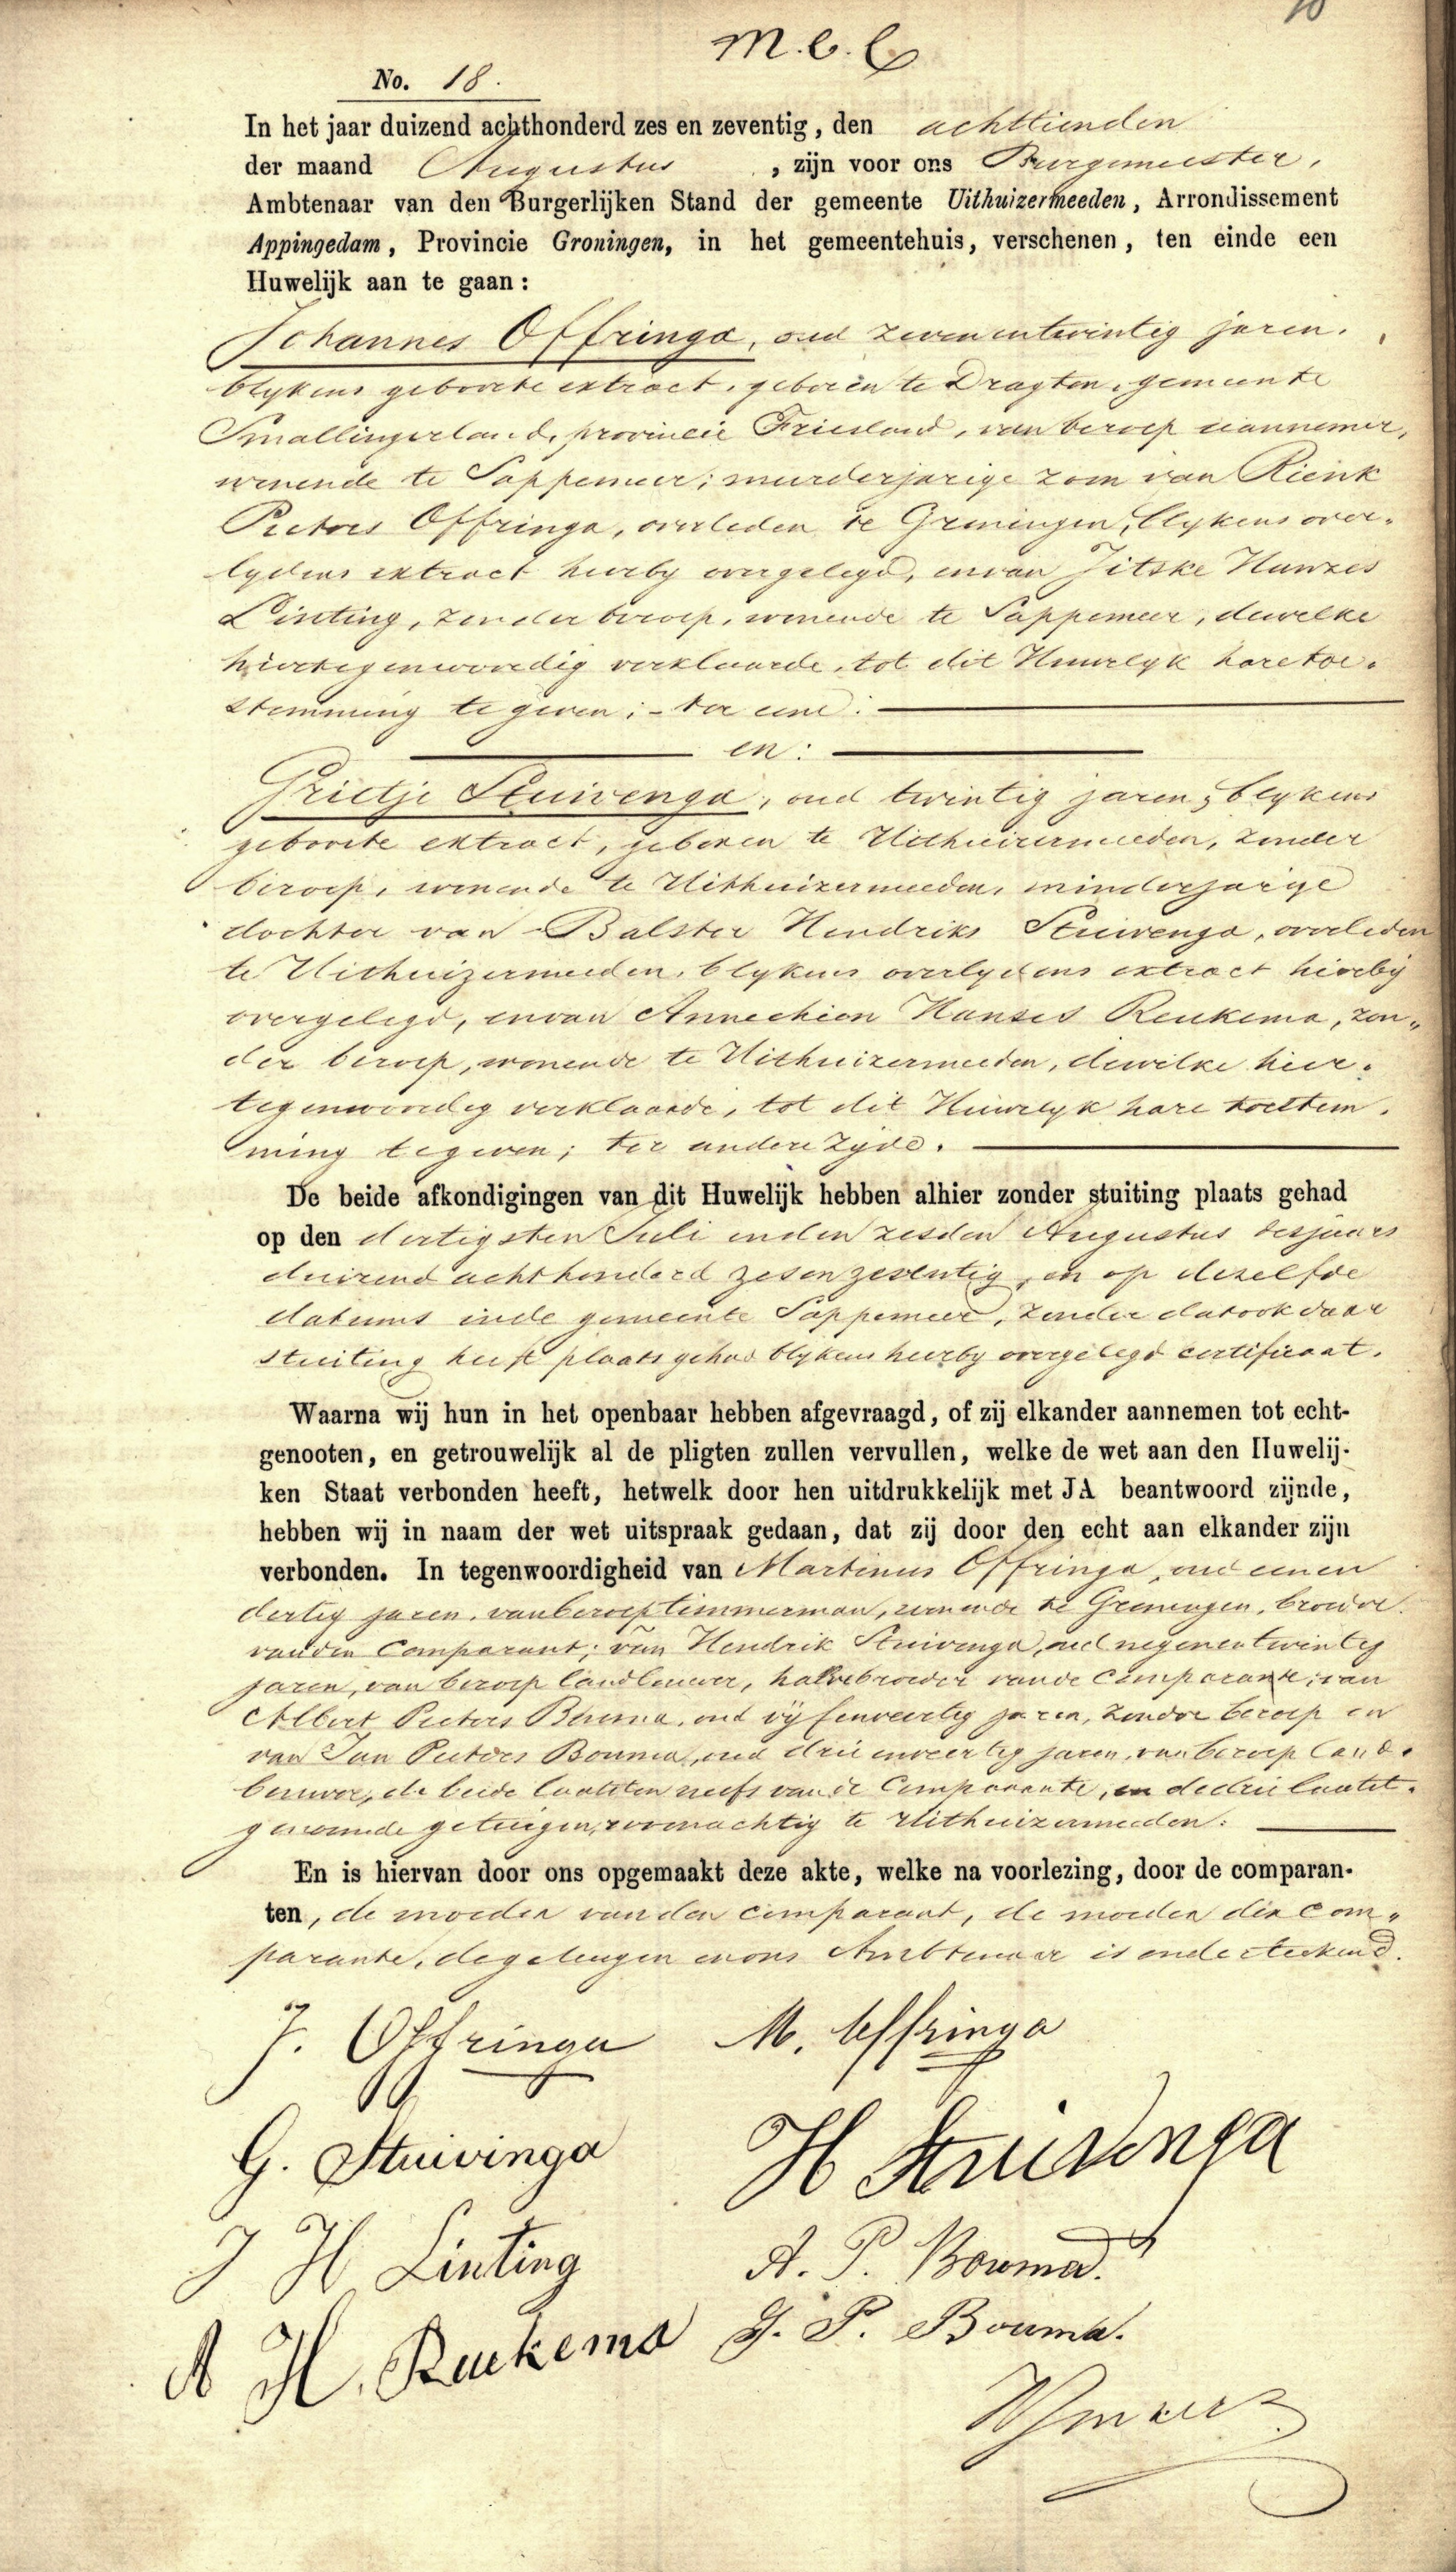 10
M.E.C
No. 18.
In het jaar duizend achthonderd zes en zeventig, den achttienden
der maand Augustus, zijn voor ons Burgemeester,
Ambtenaar van den Burgerlijken Stand der gemeente Uithuizermeeden, Arrondissement
Appingedam, Provincie Groningen, in het gemeentehuis, verschenen, ten einde een
Huwelijk aan te gaan:
Johannes Offringa, oud zevenentwintig jaren.
blykens geboorte extract, geboren te Dragten, gemeente
Smallingerland, provincie Friesland, van beroep aannemer,
wonende te Sappemeer; meerderjarige zoon van Rienk
Pieters Offringa, overleden te Groningen, blykens over-
lydens extract hierby overgelegd, en van Jitske Hanzes
Linting, zonder beroep, wonende te Sappemeer, dewelke
hiertegenwoordig verklaarde, tot dit Huwelyk hare toe-
stemming te geven; - ter eene:
en:
Grietje Stuivenga, oud twintig jaren, blykens
geboorte extract, geboren te Uithuizermeeden, zonder
beroep, wonende te Uithuizermeeden, minderjarige
dochter van Balster Hendriks Stuivenga, overleden
te Uithuizermeeden, blykens overlydens extract hierby
overgelegd, en van Annechien Hanses Reukema, zon-
der beroep, wonende te Uithuizermeeden, dewelke hier-
tegenwoordig verklaarde, tot dit Huwelyk hare toestem-
ming te geven; ter andere zyde.
De beide afkondigingen van dit Huwelijk hebben alhier zonder stuiting plaats gehad
op den dertigsten Juli en den zesden Augustus des jaars
duizend achthonderd zesenzeventig, en op dezelfde
datums in de gemeente Sappemeer, zonder dat ook daar
stuiting heeft plaats gehad blykens hierby overgelegd certificaat.
Waarna wij hun in het openbaar hebben afgevraagd, of zij elkander aannemen tot echt-
genooten, en getrouwelijk al de pligten zullen vervullen, welke de wet aan den Huwelij-
ken Staat verbonden heeft, hetwelk door hen uitdrukkelijk met JA beantwoord zijnde,
hebben wij in naam der wet uitspraak gedaan, dat zij door den echt aan elkander zijn
verbonden. In tegenwoordigheid van Martinus Offringa, oud eenen
dertig jaren, van beroep timmerman, wonende te Groningen, broeder
van den Comparant; van Hendrik Stuivenga, oud negenentwintig
jaren, van beroep landbouwer, halvebroeder van de Comparante; van
Albert Pieters Bouma, oud vyfenveertig jaren, zonder beroep en
van Jan Pieters Bouma, oud drieenveertig jaren, van beroep land-
bouwer, de beide laatsten neefs van de Comparante, en de drie laatst-
genoemde getuigen, woonachtig te Uithuizermeeden.
En is hiervan door ons opgemaakt deze akte, welke na voorlezing, door de comparan-
ten, de moeder van den comparant, de moeder der com-
parante, de getuigen en ons Ambtenaar is onderteekend.
J. Offringa M. Offringa
G. Stuivinga H Stuivenga
J H Linting A. P. Bouma.
A H. Reukema J. P. Bouma.